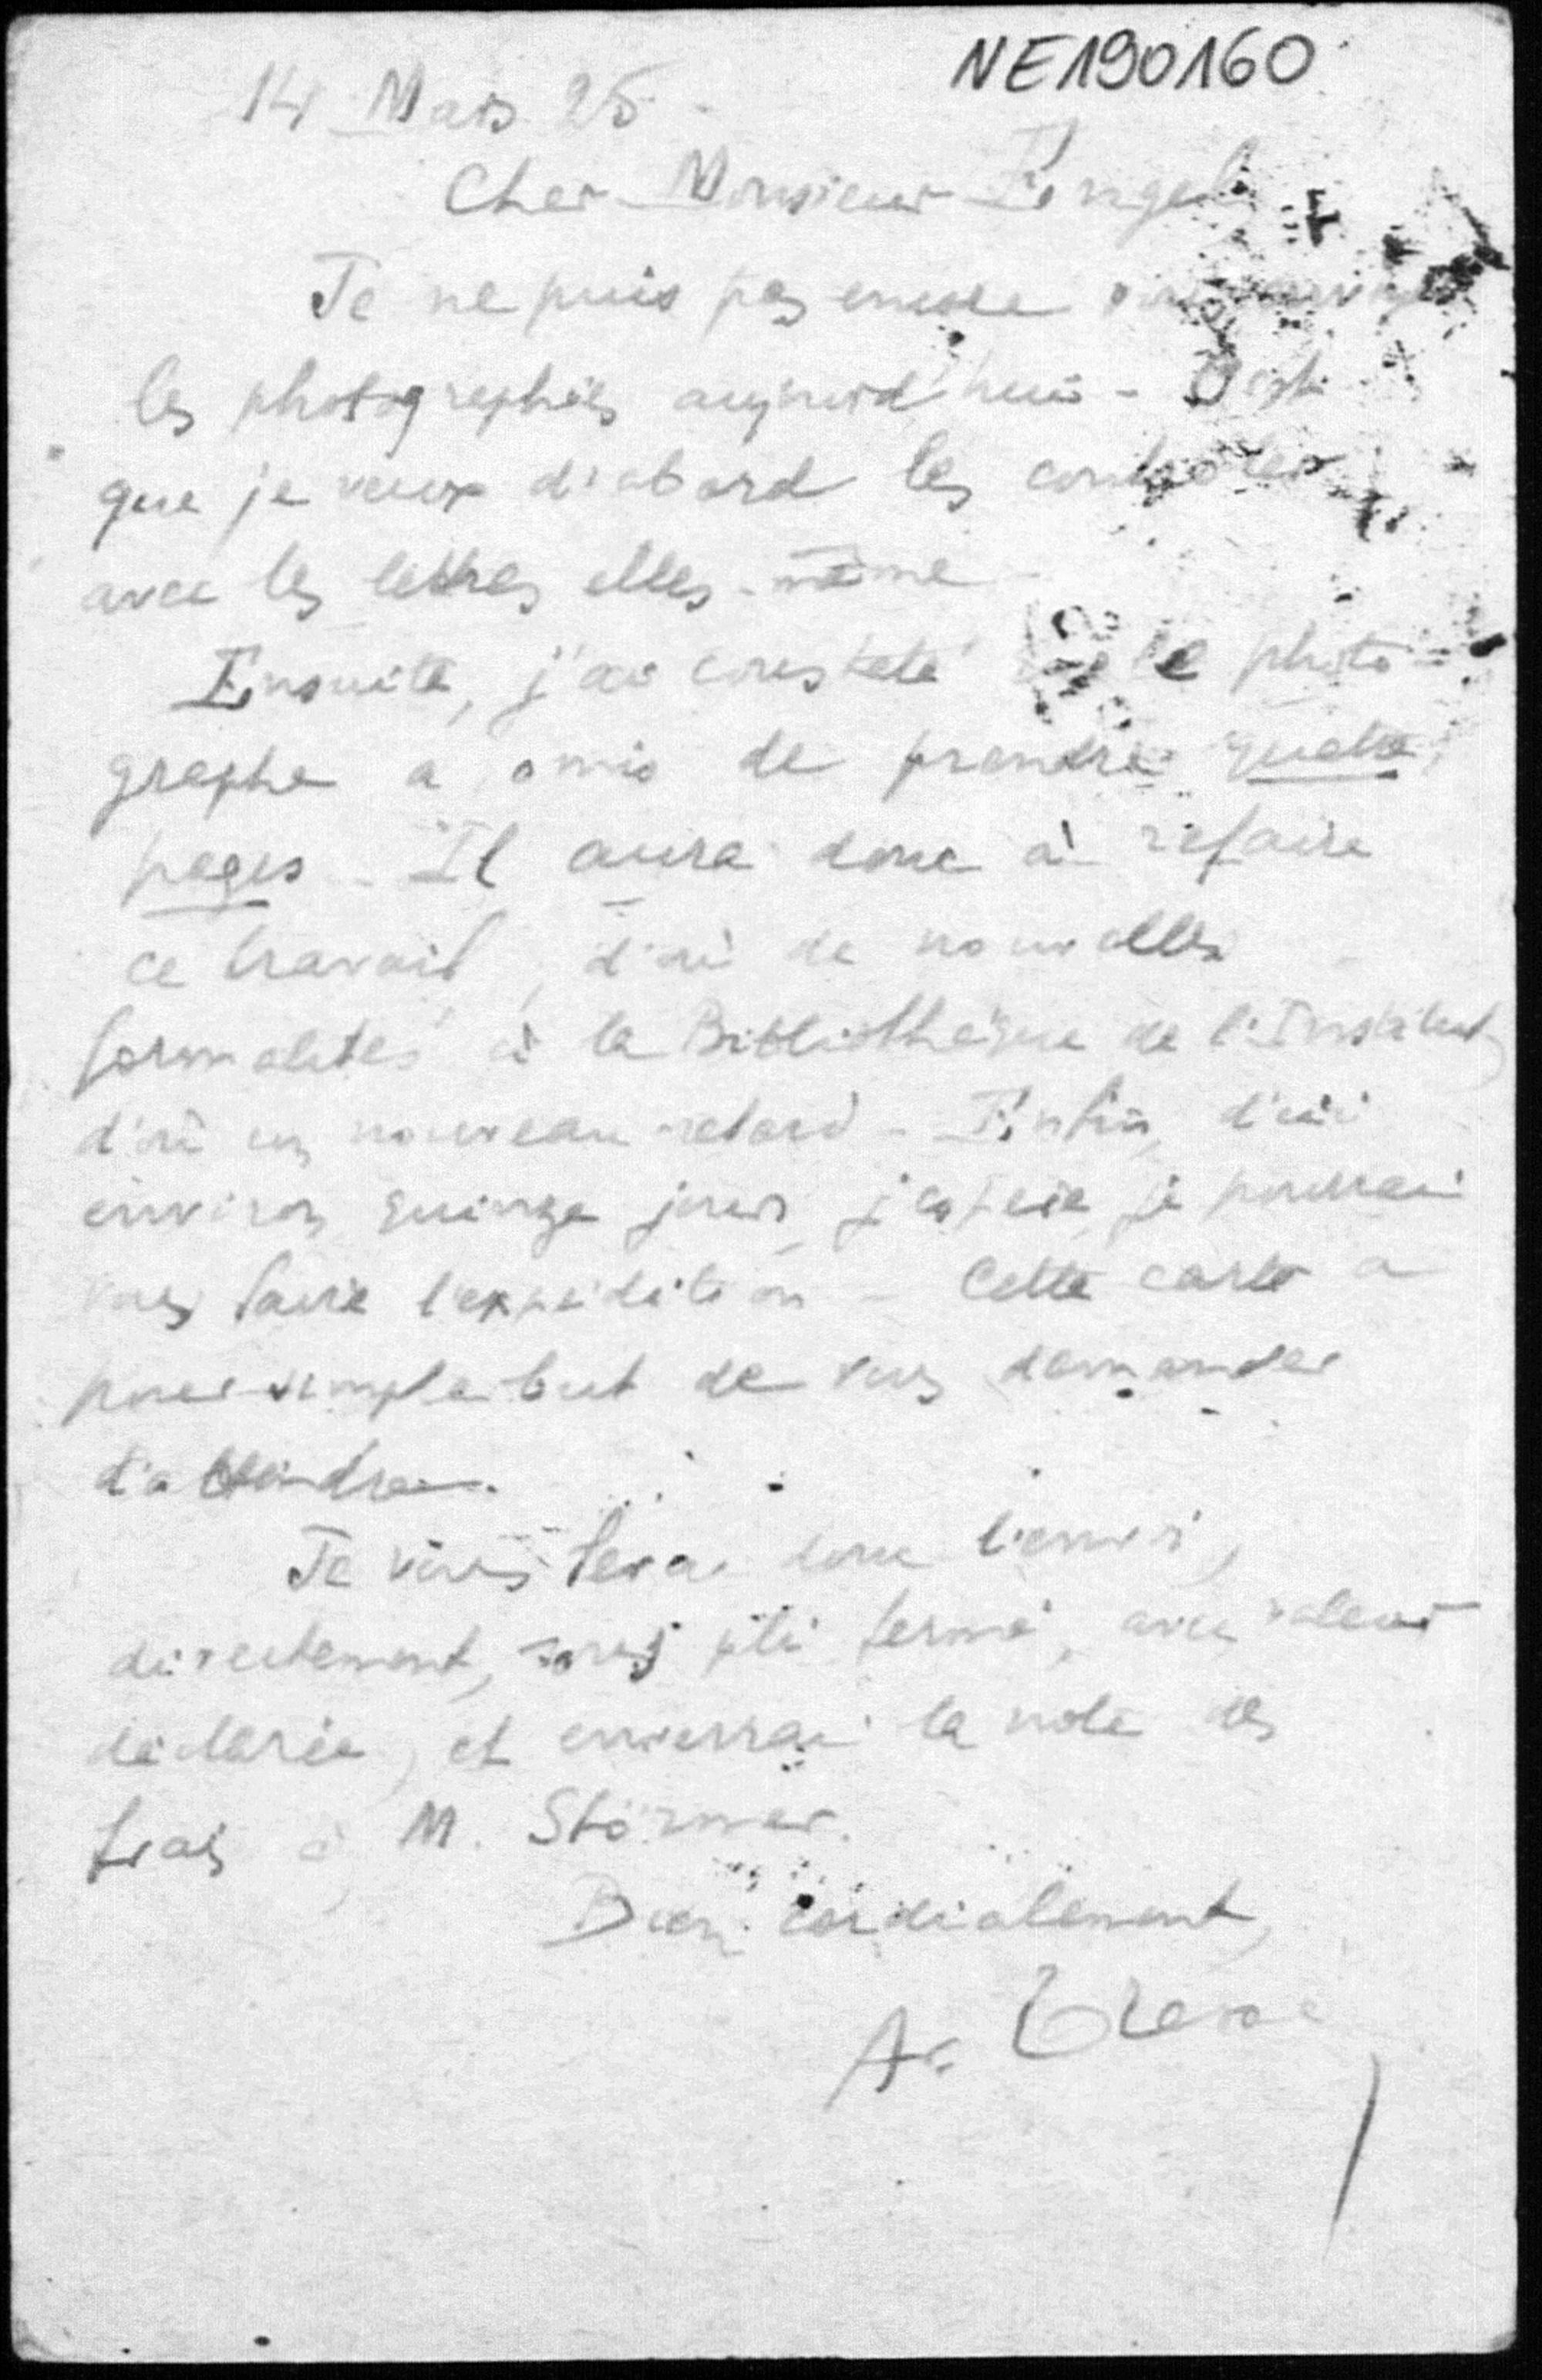 NE190160
14 Mars 25
Cher Monsieur Engel
Je ne puis pas encore
les photographies aujourd'hui - C'est
que je veux d'abord les controler
avec les lettres elles-même
Ensuite, j'ai constaté le photo-
graphe a omis de prendre quatre
pages - Il aura donc à refaire
ce travail, d'où de nouvelles
formalités à la Bibliothèque de l'Institut,
d'où un nouveau retard - Enfin, d'ici
environ quinze jours, j'espère, je pourrai
vous faire l'expédition - Cette carte a
pour simple but de vous demander
d'attendre.
Je vous ferai donc l'envoi,
directement, sous pli fermé, avec valeur
déclarée, et enverrai la note des
frais à M. Störmer.
Bien cordialement,